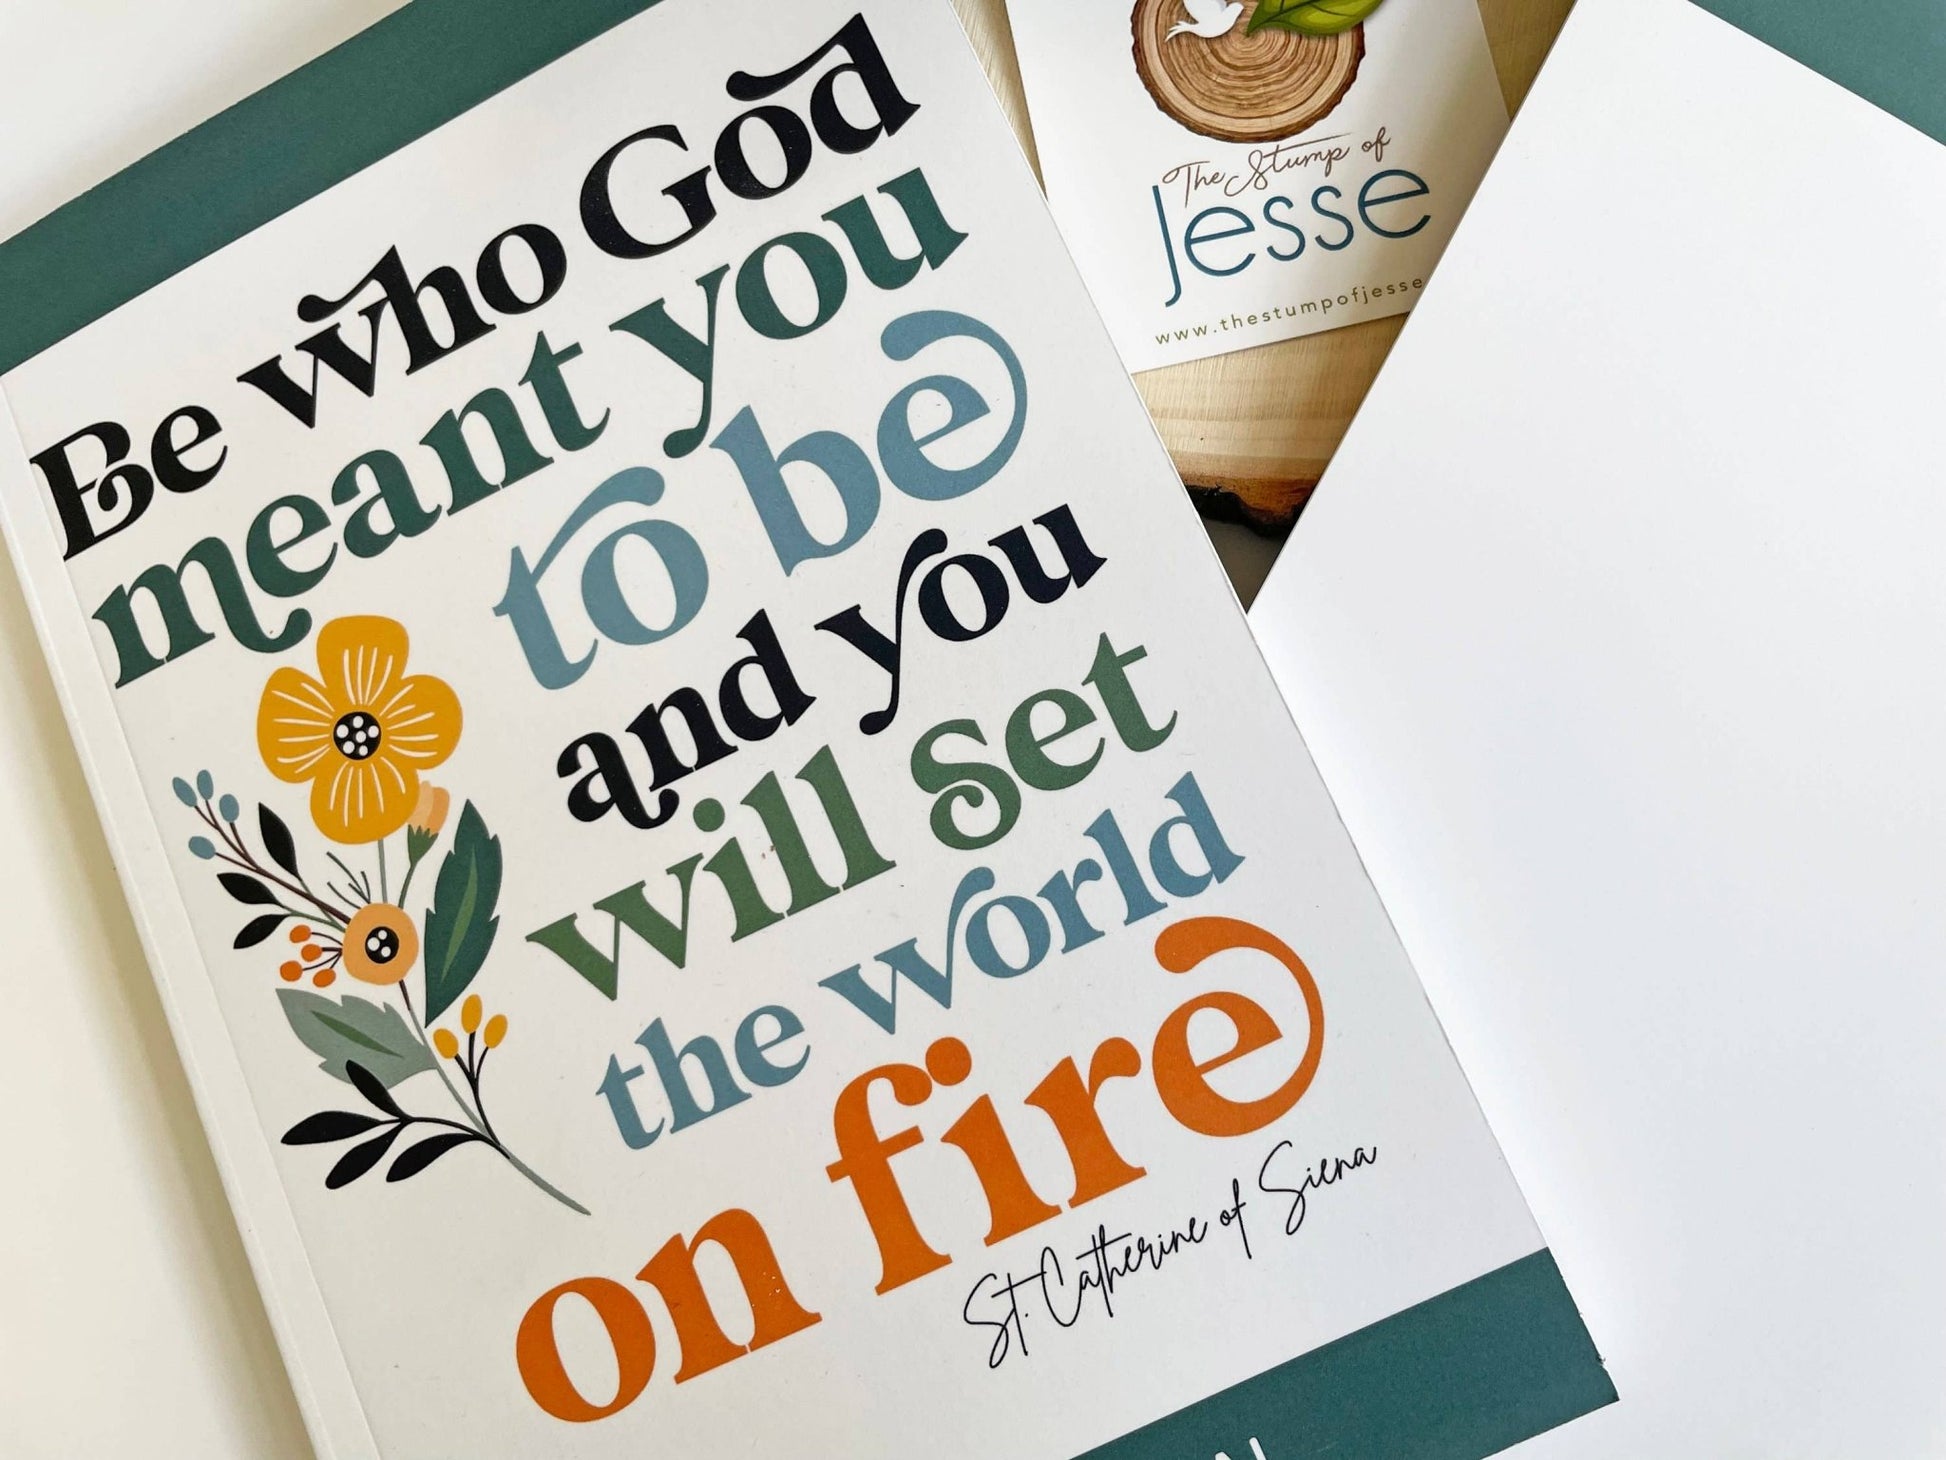 Be who God
meant you
to be
and you
will set
the world
on fire
St. Catherine of Siena
The Stump of
Jesse
www.thestumpofjesse